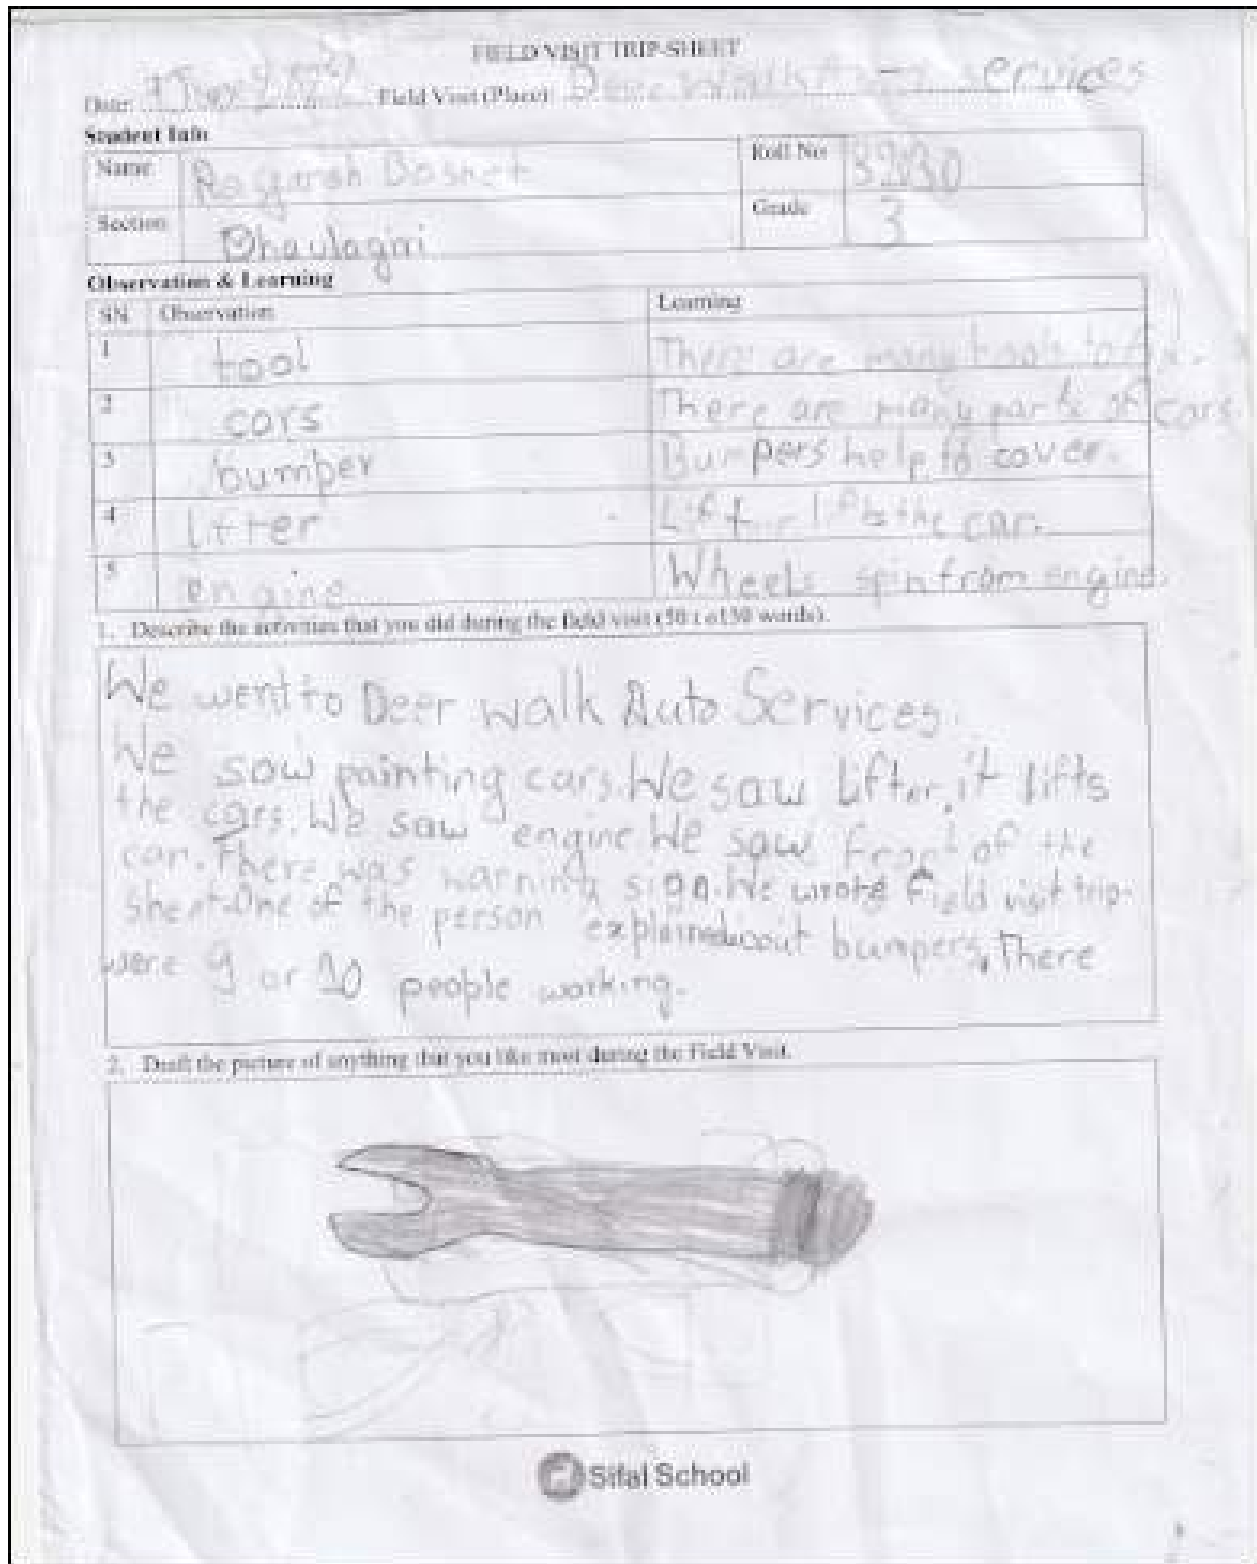 FIELD VISIT TRIP-SHEET
Date: Field Visit (Place): Deer walk services
Student Info
Name Basnet Roll No 32030
Section Dhaulagiri Grade 3
Observation & Learning
SN Observation Learning
1 tool There are many tools to fix.
2 cars There are many parts of cars
3 bumper Bumpers help to cover.
4 Lifter Lifter lifts the car.
5 engine Wheels spin from engine.
1. Describe the activities that you did during the field visit (50 to 150 words).
We went to Deer walk Auto Services.
We saw painting cars. We saw Lifter, it lifts
the cars. We saw engine. We saw front of the
car. There was warning sign. We wrote field visit trip-
sheet. One of the person explained about bumpers. There
were 9 or 10 people working.
2. Draft the picture of anything that you like most during the Field Visit.
Sifal School